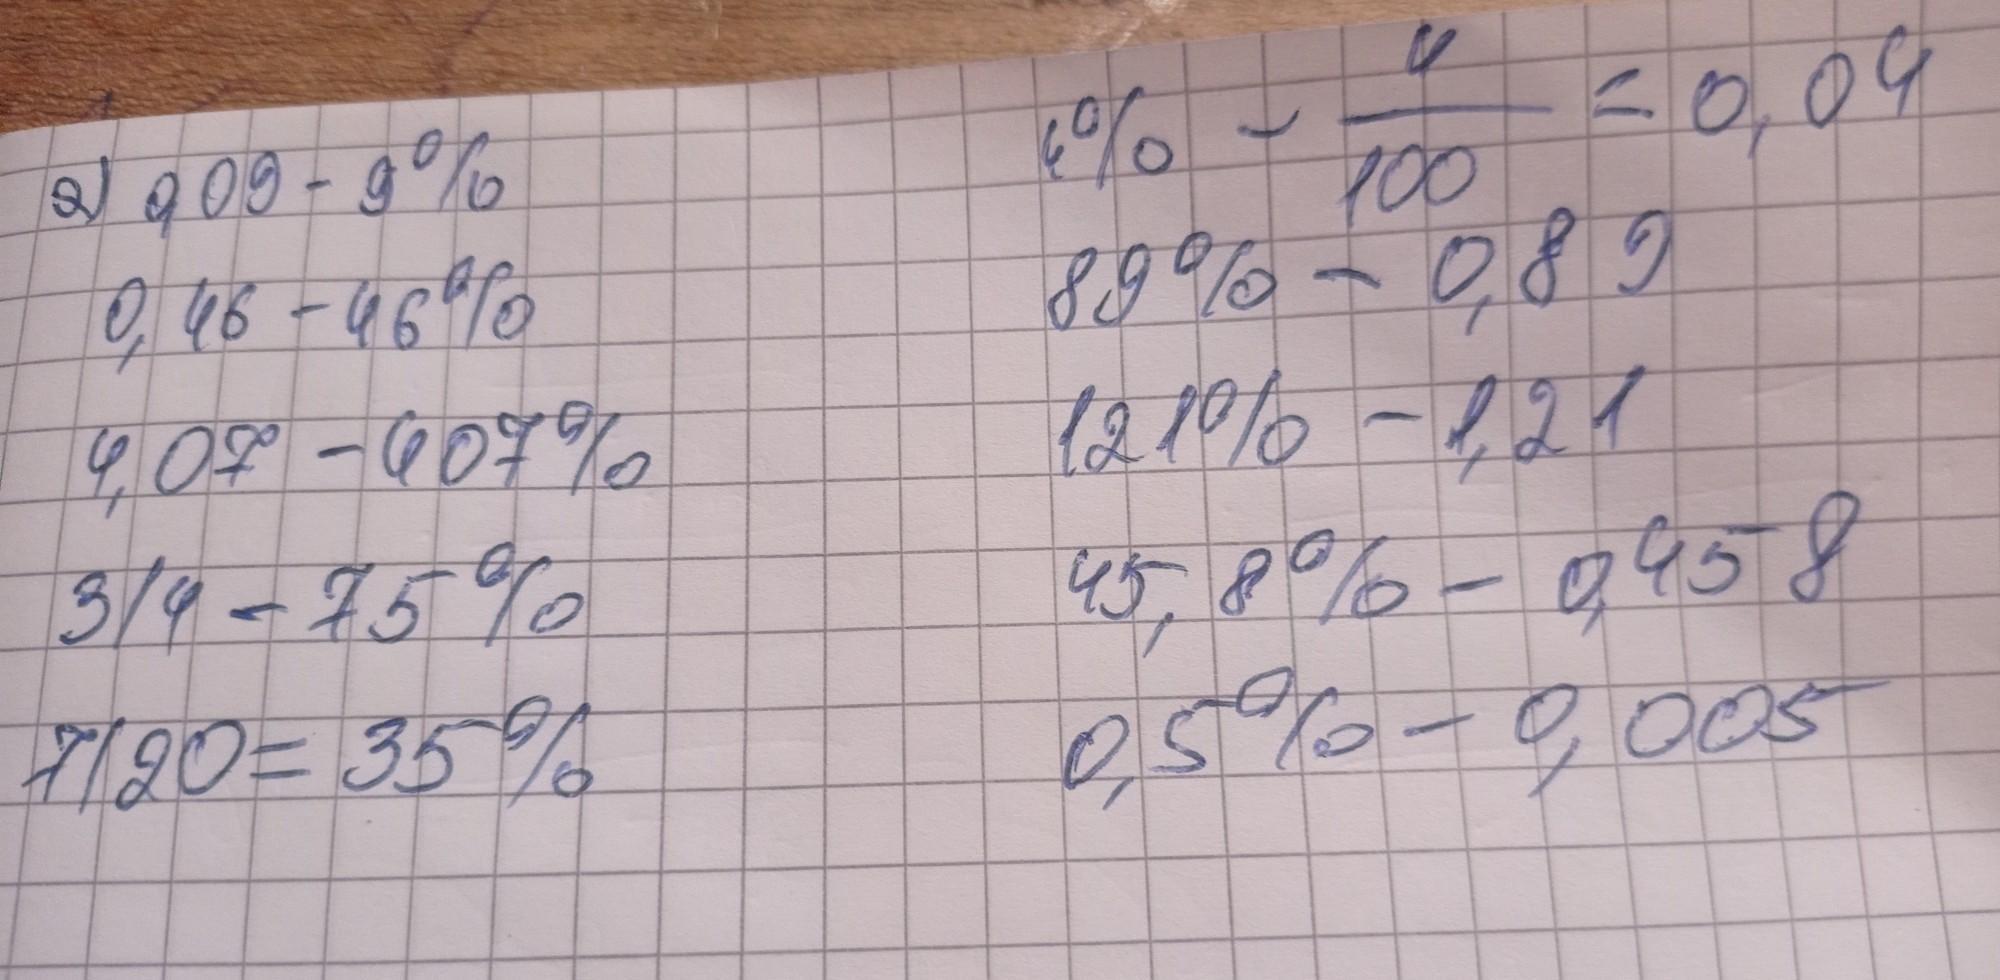 2) 0,09 - 9%
0,46 - 46%
4,07 - 407%
3/4 - 75%
7/20 = 35%
4% - 4/100 = 0,04
89% - 0,89
121% - 1,21
45,8% - 0,458
0,5% - 0,005